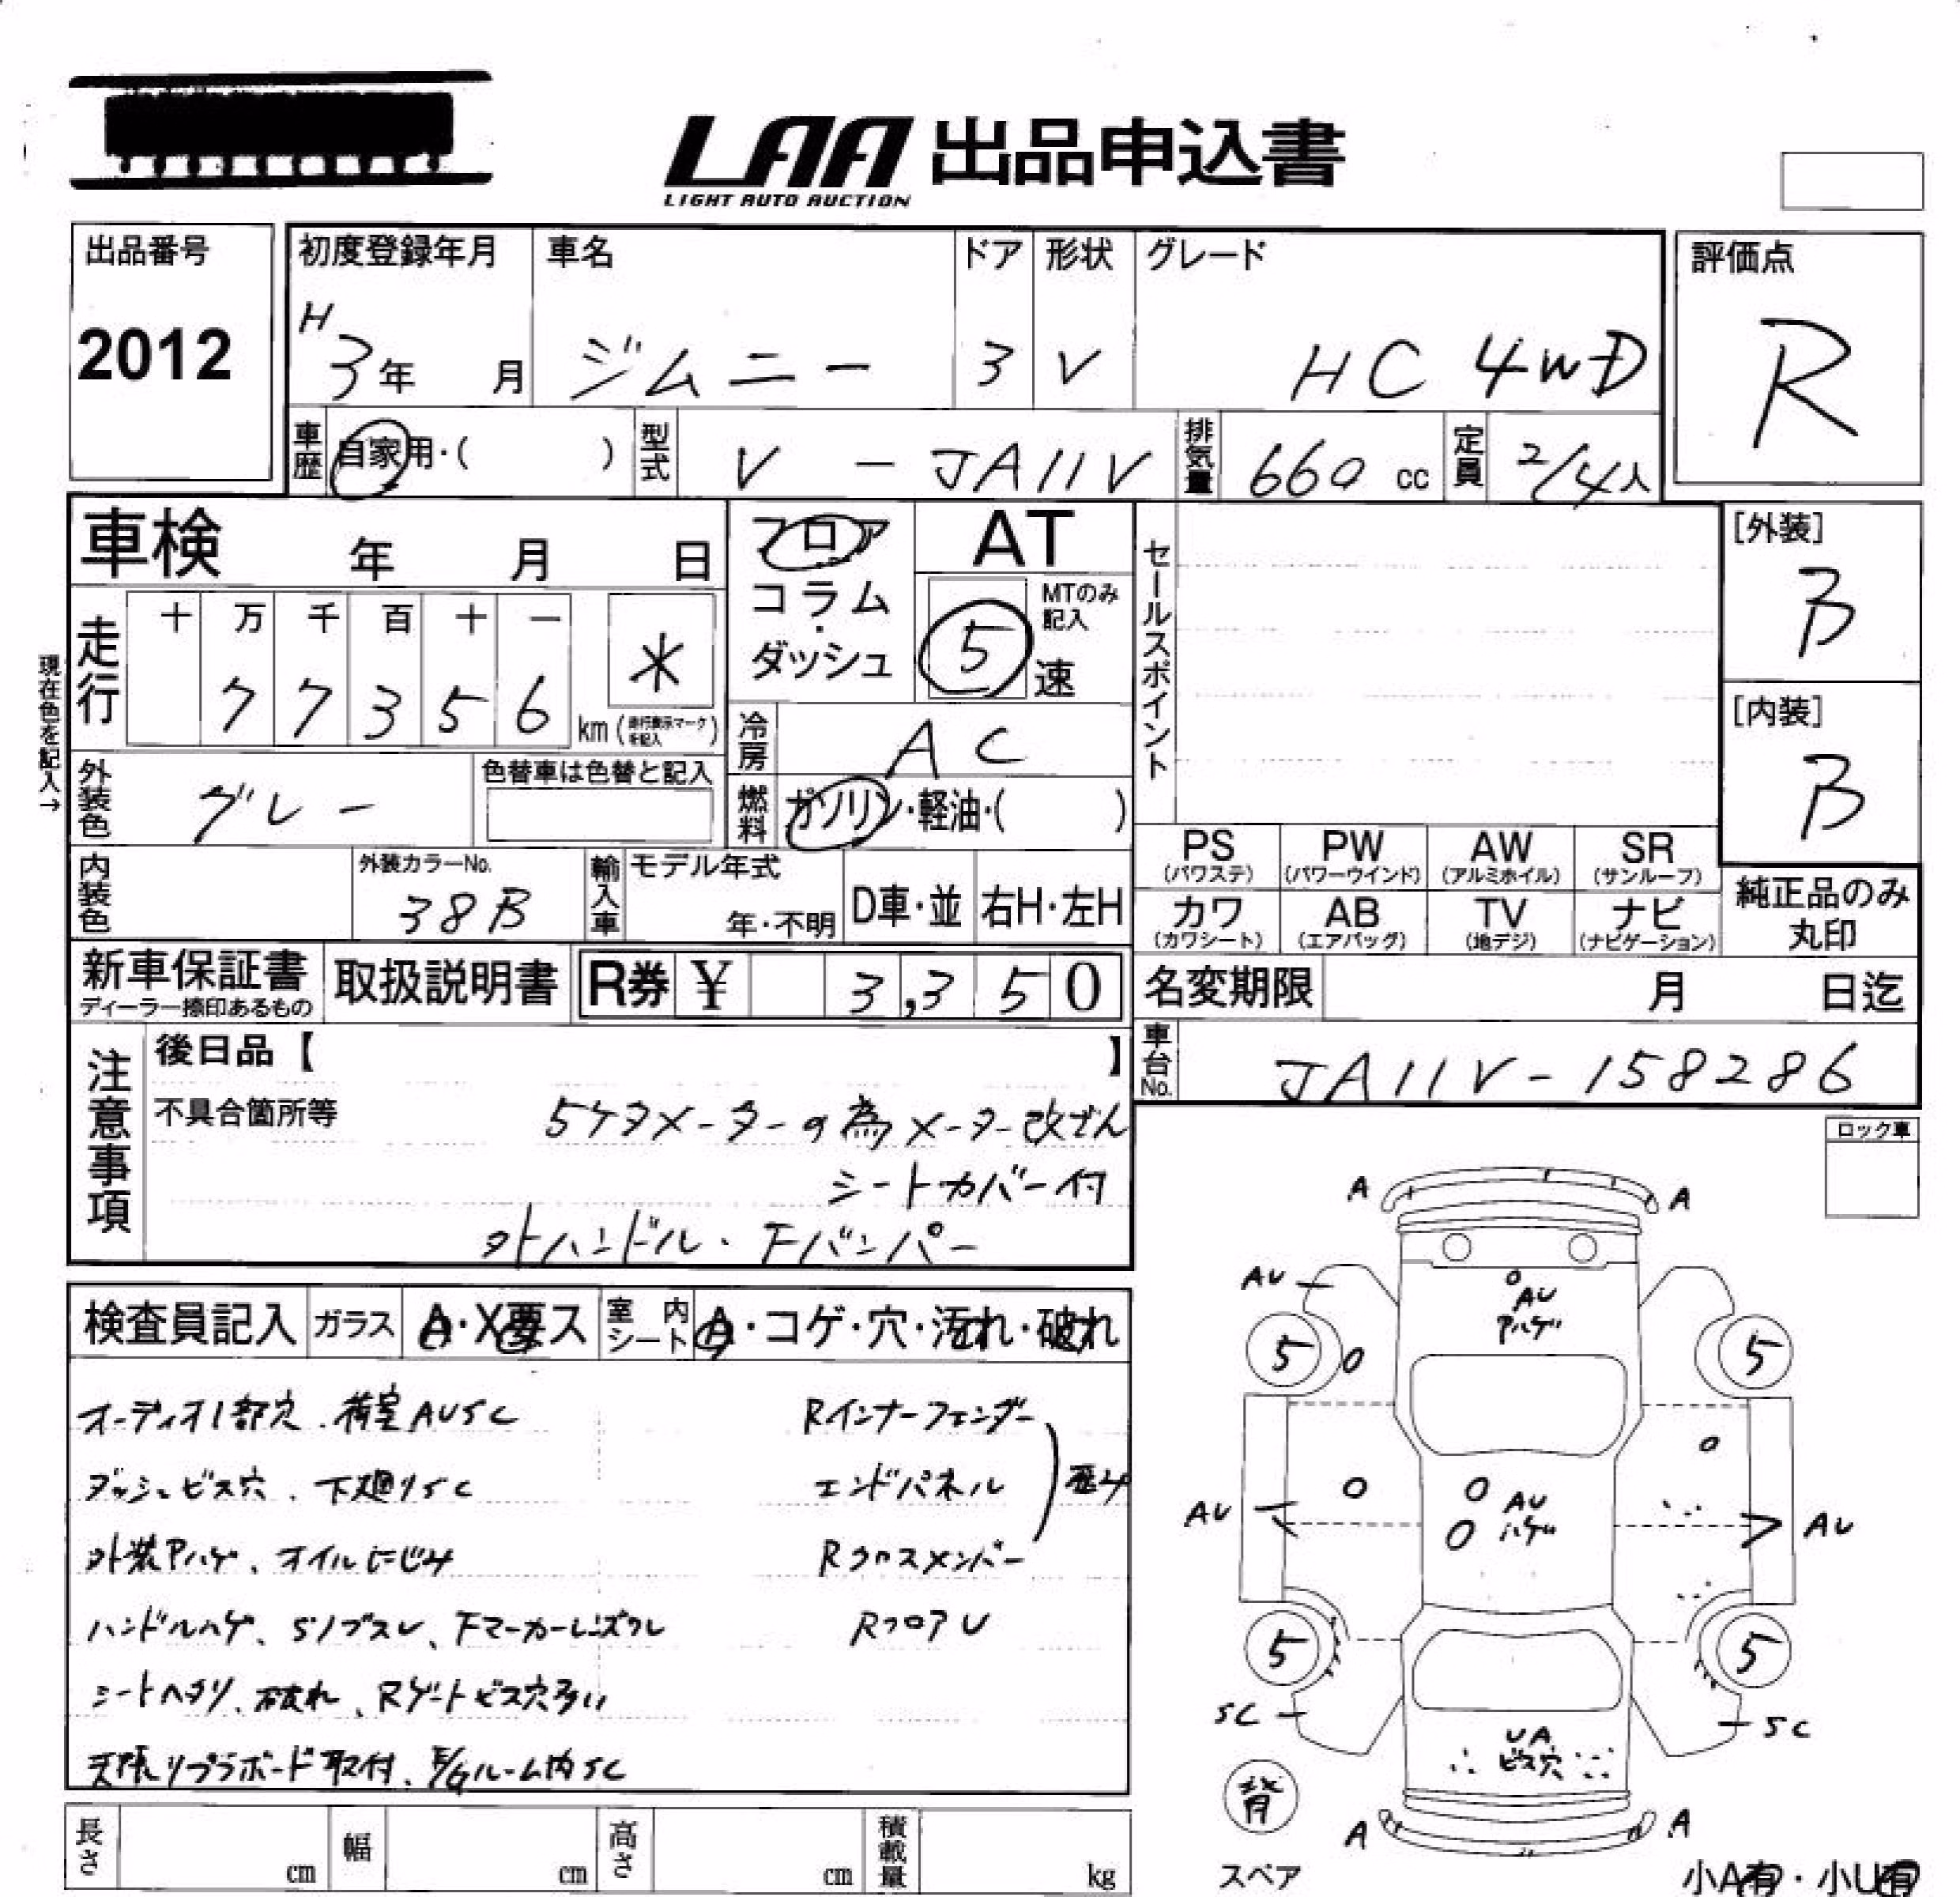 LAA 出品申込書
LIGHT AUTO AUCTION
出品番号
2012
初度登録年月 車名 ドア 形状 グレード
H 3年 月 ジムニー 3 V HC 4WD
評価点
R
車歴 自家用・( ) 型式 V - JA11V 排気量 660 cc 定員 2/4人
車検 年 月 日
フロア
コラム
・
ダッシュ
AT
MTのみ記入
5 速
セールスポイント
[外装]
B
[内装]
B
現在色を記入→
走行 十 万 千 百 十 一
7 7 3 5 6 km (走行表示マークを記入)
*
冷房 AC
外装色 グレー 色替車は色替と記入
燃料 ガソリン・軽油・( )
内装色 外装カラーNo. 38B
輸入車 モデル年式 年・不明 D車・並 右H・左H
PS (パワステ) PW (パワーウインド) AW (アルミホイル) SR (サンルーフ)
カワ (カワシート) AB (エアバッグ) TV (地デジ) ナビ (ナビゲーション)
純正品のみ丸印
新車保証書
ディーラー捺印あるもの
取扱説明書 R券 ¥ 3,350
名変期限 月 日迄
車台No. JA11V-158286
注意事項
後日品【 】
不具合箇所等 5ケタメーターの為メーター改ざん
シートカバー付
外ハンドル・Fバンパー
ロック車
検査員記入 ガラス A・X要ス 室内シート A・コゲ・穴・汚れ・破れ
オーディオ1部穴、荷室AUSC Rインナーフェンダー
ダッシュビス穴、下廻りSC エンドパネル 歪み
外装Pハゲ、オイルにじみ Rクロスメンバー
ハンドルハゲ、 Fマーカーレンズワレ RフロアU
シートヘタリ、破れ、Rゲートビス穴多い
天張りプラボード取付、E/Gルーム内SC
A A
AU
AU
Pハゲ
5 5
AU
AU
ハゲ
AU
5 5
SC SC
UA
ビス穴
背
スペア
A A
小A有・小U有
長さ cm 幅 cm 高さ cm 積載量 kg